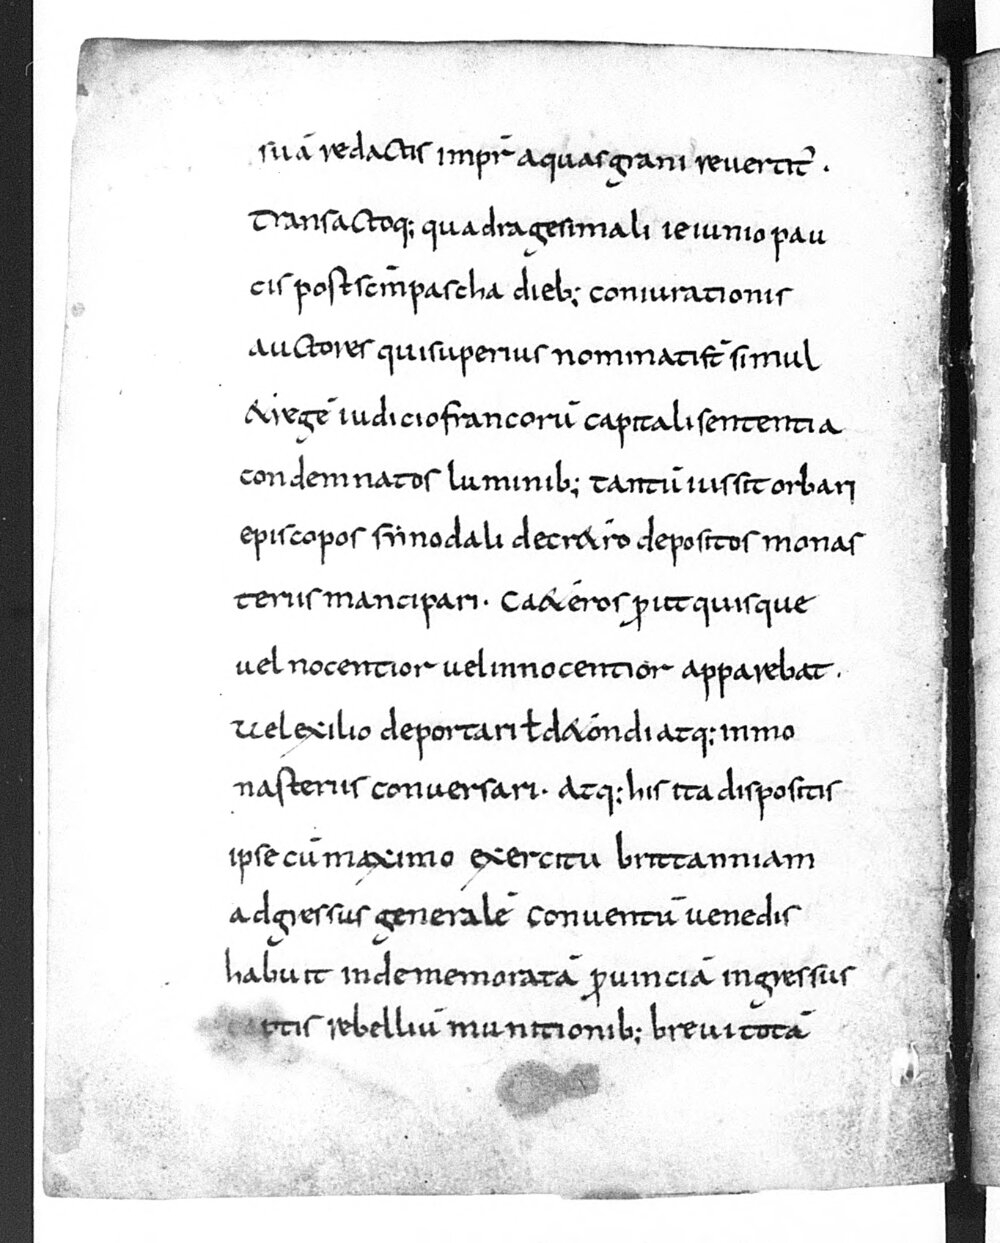 suā redactis impr̄ aquasgrani reuertit᷑.
Transactoq; quadragesimali ieiunio pau
cis post sc̄m pascha dieb; coniurationis
auctores qui superius nominati st̄ simul
& regē iudicio francorū capitali sententia
condemnatos luminib; tantū iussit orbari
episcopos synodali decr&o depositos monas
teriis mancipari. Ca&eros ꝓut quisque
uel nocentior uel innocentior apparebat.
Uel exilio deportari ł d&ondi atq; in mo
nasteriis conuersari. Atq; his ita dispositis
ipse cū maximo exercitu brittanniam
adgressus generalē conuentū uenedis
habuit inde memoratā ꝓuinciā ingressus
captis rebelliū munitionib; breui totā